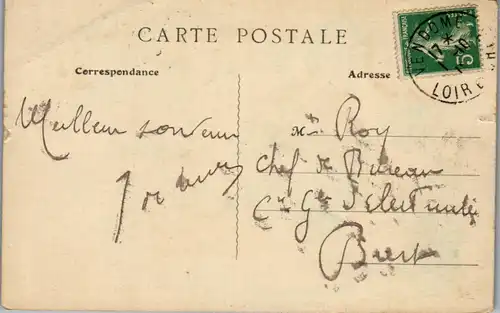 CARTE POSTALE
Correspondance
Adresse
VENDOME
LOIR
5
Meilleur souvenir
Mr Roy
Chef de Bureau
Cie Gle d'Electricité
Brest